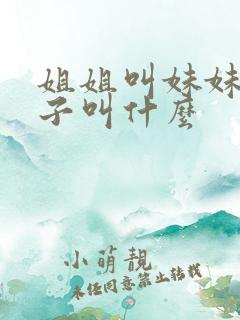 姐姐叫妹妹
子叫什麼
小萌靚
未经同意禁止转载